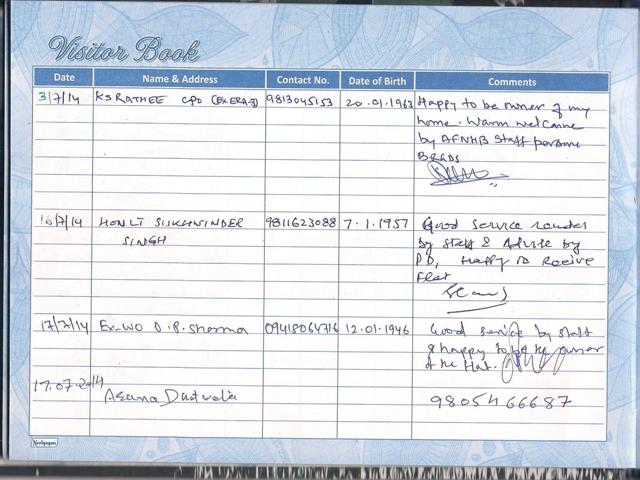 Visitor Book
Date Name & Address Contact No. Date of Birth Comments
3/7/14 KS RATHEE CPO 9813045153 20.01.1963 Happy to be owner of my
home. Warm welcome
by AFNHB Staff
16/7/14 HON LT SUKHWINDER 9811623088 7.1.1957 Good service
SINGH by staff & Advise by
PD, Happy to
Flat
17/7/14 Ex-WO D.R. Sharma 09418064716 12.01.1946 Good service by staff
& happy to be the owner
of the flat.
17.07.2014
9805466687
Neelgagan